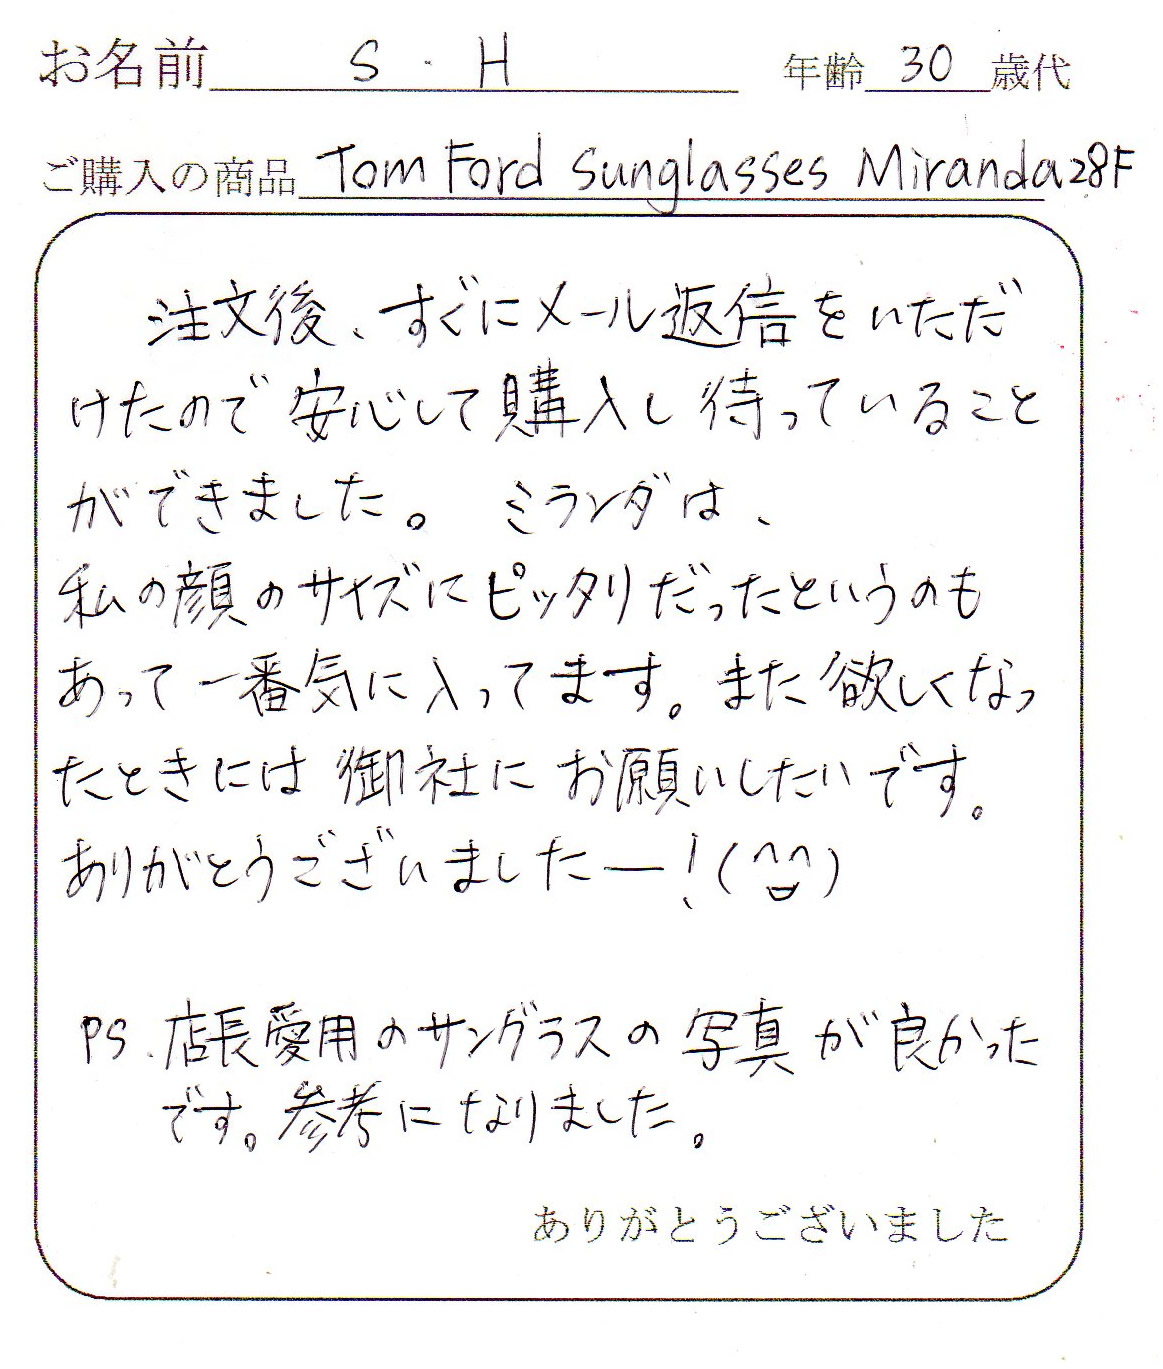 お名前 S・H 年齢 30 歳代
ご購入の商品 Tom Ford Sunglasses Miranda28F
注文後、すぐにメール返信をいただ
けたので安心して購入し待っていること
ができました。 ミランダは、
私の顔のサイズにピッタリだったというのも
あって一番気に入ってます。また欲しくなっ
たときには御社にお願いしたいです。
ありがとうございましたー!(^^)
PS.店長愛用のサングラスの写真が良かった
です。参考になりました。
ありがとうございました